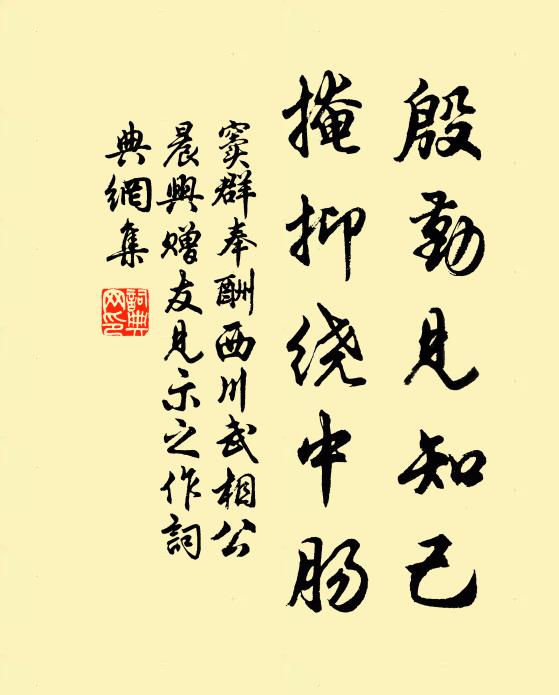 殷勤見知己
掩抑绕中肠
窦群奉酬西川武相公
晨興赠友見示之作詞
典網集
詞典
网印